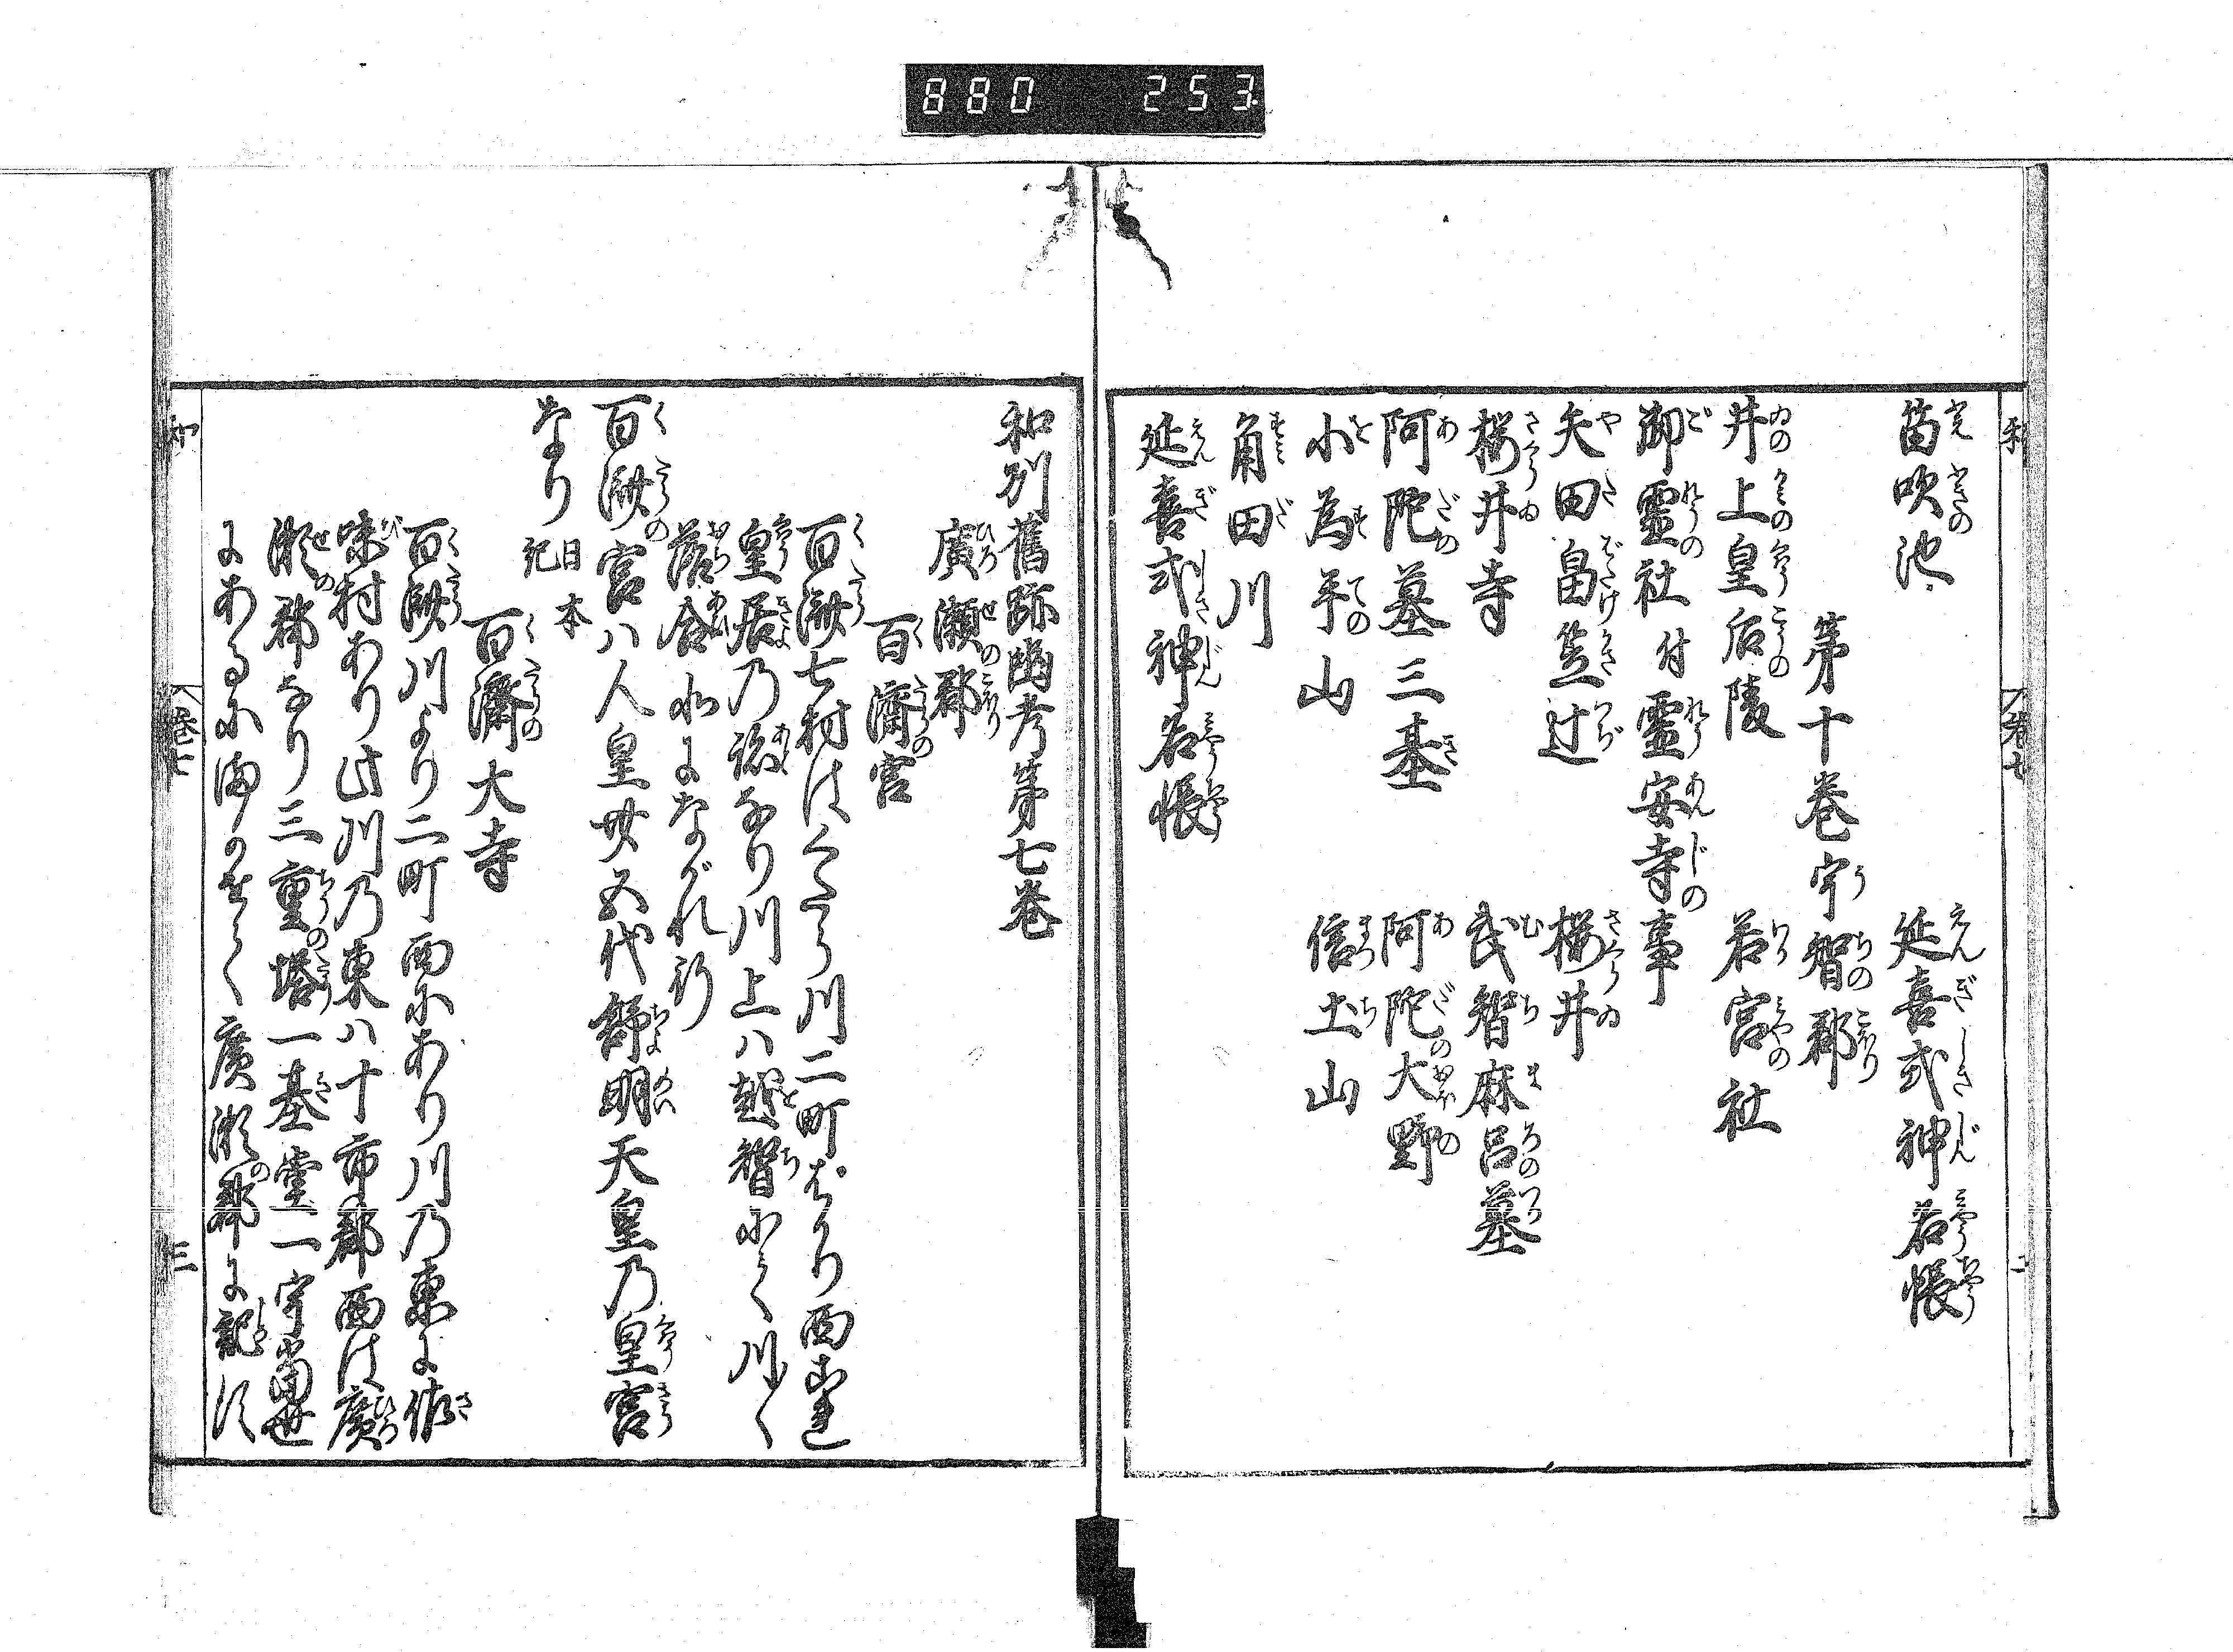 880 253
笛吹池
延喜式神名帳
第十巻宇智郡
井上皇后陵
若宮社
御霊社付霊安寺の事
矢田畠笠辻
桜井
桜井寺
武智麻呂墓
阿陀墓三基
阿陀大野
小為手山
信土山
角田川
延喜式神名帳
和州舊跡幽考第七巻
廣瀬郡
百濟宮
百濟七村はくたら川二町ばかり西
皇居乃跡なり川上ハ越智にて川
落合水にながれ行
百濟の宮ハ人皇卅五代舒明天皇乃皇宮
なり
日本
記
百濟大寺
百濟川より二町西にあり川乃東に佐
味村あり此川乃東ハ十市郡西は廣
瀬の郡なり三重の塔一基堂一宇當世
にあるに
廣瀬の郡に記す
巻七
三